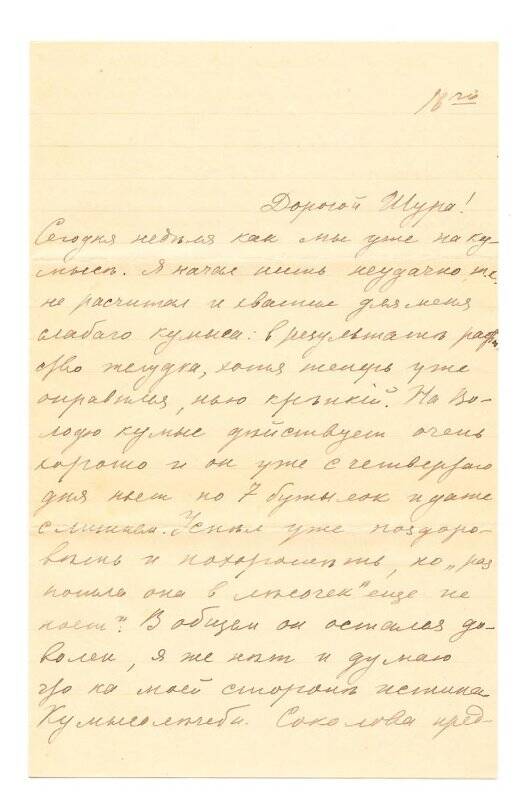 18го
Дорогой Шура!
Сегодня недѣля как мы уже на ку-
мысѣ. Я начал пить неудачно, т.е.
не расчитал и хватил для меня
слабаго кумыса: в результатѣ разстрой-
ство желудка, хотя теперь уже
оправился, пью крѣпкій. На Во-
лодю кумыс дѣйствует очень
хорошо и он уже с четвертаго
дня пьет по 7 бутылок и даже
с лишнем. Успѣл уже поздоро-
вѣть и похорошѣть, но „раз
пошла она в лѣсочек" еще не
поет". В общем он остался до-
волен, я же нѣт и думаю
что на моей сторонѣ истина.
Кумысолѣчебн. Соколова пред-